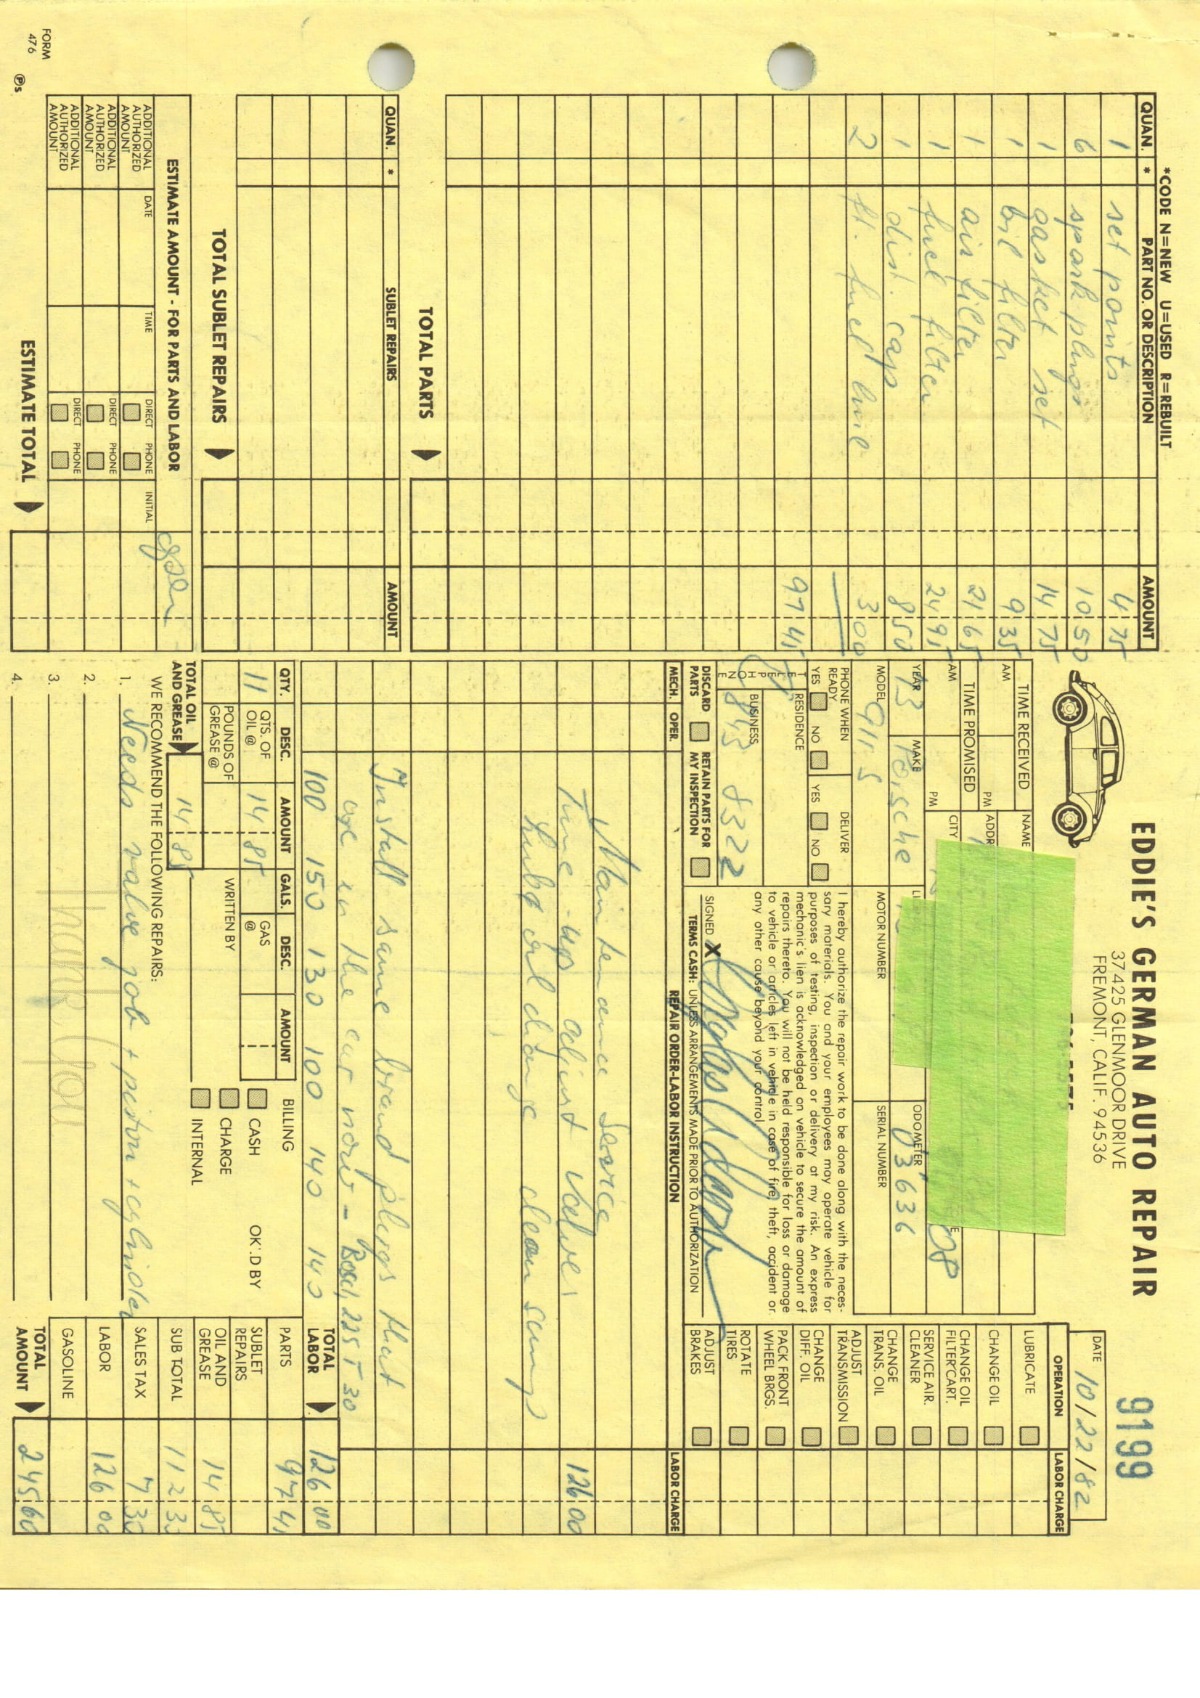 EDDIE'S GERMAN AUTO REPAIR
37425 GLENMOOR DRIVE
FREMONT, CALIF. 94536
9199
DATE 10/22/82
*CODE N=NEW U=USED R=REBUILT
QUAN. * PART NO. OR DESCRIPTION AMOUNT
1 set points 4 75
6 spark plugs 10 50
1 gasket set 14 75
1 oil filter 9 35
1 air filter 21 65
1 fuel filter 24 95
1 dist. cap 8 50
2 ft. fuel line 3 00
97 45
TOTAL PARTS
QUAN. * SUBLET REPAIRS AMOUNT
TOTAL SUBLET REPAIRS
ESTIMATE AMOUNT - FOR PARTS AND LABOR
ADDITIONAL AUTHORIZED AMOUNT DATE TIME DIRECT PHONE INITIAL
ADDITIONAL AUTHORIZED AMOUNT DIRECT PHONE
ADDITIONAL AUTHORIZED AMOUNT DIRECT PHONE
ESTIMATE TOTAL
FORM 476
TIME RECEIVED AM PM
NAME
TIME PROMISED AM PM
ADDR
CITY
YEAR 73 MAKE Porsche
ODOMETER 03636
MODEL 911 S
MOTOR NUMBER
SERIAL NUMBER
PHONE WHEN READY YES NO
DELIVER YES NO
TELEPHONE
RESIDENCE
BUSINESS 843 8322
DISCARD PARTS
RETAIN PARTS FOR MY INSPECTION
I hereby authorize the repair work to be done along with the neces-
sary materials. You and your employees may operate vehicle for
purposes of testing, inspection or delivery at my risk. An express
mechanic's lien is acknowledged on vehicle to secure the amount of
repairs thereto. You will not be held responsible for loss or damage
to vehicle or articles left in vehicle in case of fire, theft, accident or
any other cause beyond your control.
SIGNED X
TERMS CASH: UNLESS ARRANGEMENTS MADE PRIOR TO AUTHORIZATION
OPERATION LABOR CHARGE
LUBRICATE
CHANGE OIL
CHANGE OIL FILTER CART.
SERVICE AIR CLEANER
CHANGE TRANS. OIL
ADJUST TRANSMISSION
CHANGE DIFF. OIL
PACK FRONT WHEEL BRGS.
ROTATE TIRES
ADJUST BRAKES
MECH. OPER. REPAIR ORDER-LABOR INSTRUCTION LABOR CHARGE
Maintenance Service
Tune-up adjust valves 126 00
lube oil change clean
Install same brand plugs that
are in the car now - 225 T 30
100 150 130 100 140 140
TOTAL LABOR 126 00
QTY. DESC. AMOUNT GALS. DESC. AMOUNT
11 QTS. OF OIL @ 14 85 GAS @
POUNDS OF GREASE @
WRITTEN BY
TOTAL OIL AND GREASE 14 85
BILLING
CASH
CHARGE
INTERNAL
OK'D BY
WE RECOMMEND THE FOLLOWING REPAIRS:
1. Needs valve job + piston + cylinder
2.
3.
4.
thank you
PARTS 97 45
SUBLET REPAIRS
OIL AND GREASE 14 85
SUB TOTAL 112 3
SALES TAX 7 30
LABOR 126 00
GASOLINE
TOTAL AMOUNT 245 60